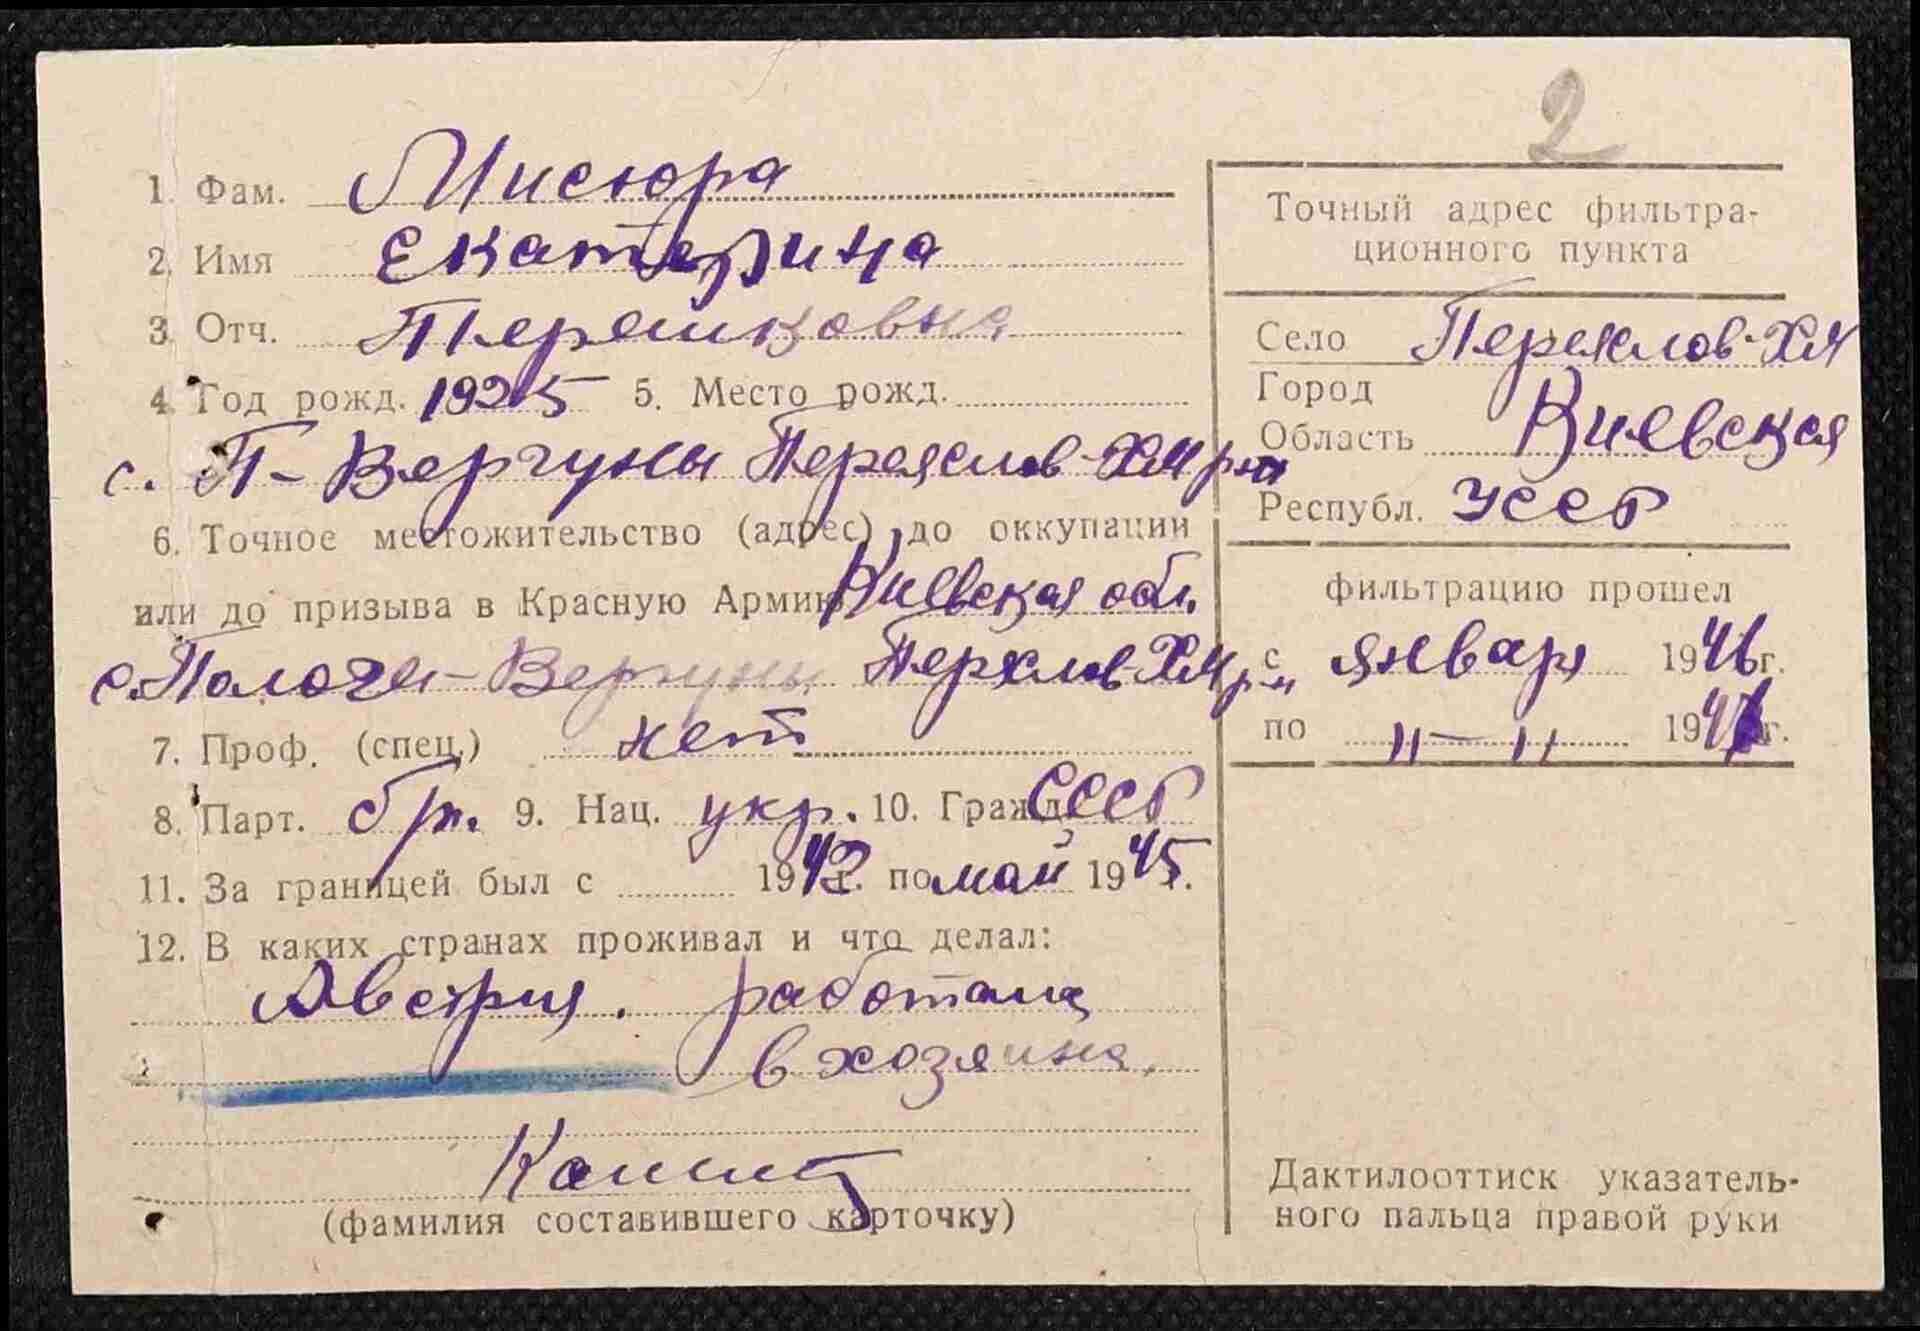 2
1. Фам. Мисюра
2. Имя Екатерина
3. Отч. Терешковна
4. Год рожд. 1925 5. Место рожд.
с. П-Вергуны Переяслов-Хм р-на
6. Точное местожительство (адрес) до оккупации
или до призыва в Красную Армию Киевская обл.
с. Пологи-Вергуны Переяслов-Хм р-н
7. Проф. (спец.) нет
8. Парт. бп. 9. Нац. укр. 10. Гражд. СССР
11. За границей был с 1942г. по май 1945г.
12. В каких странах проживал и что делал:
Австрия. работала
в хозяина.
(фамилия составившего карточку)
Точный адрес фильтра-
ционного пункта
Село Переяслов-Хм
Город
Область Киевская
Республ. УССР
фильтрацию прошел
с январь 1946г.
по 11-11 194 г.
Дактилооттиск указатель-
ного пальца правой руки